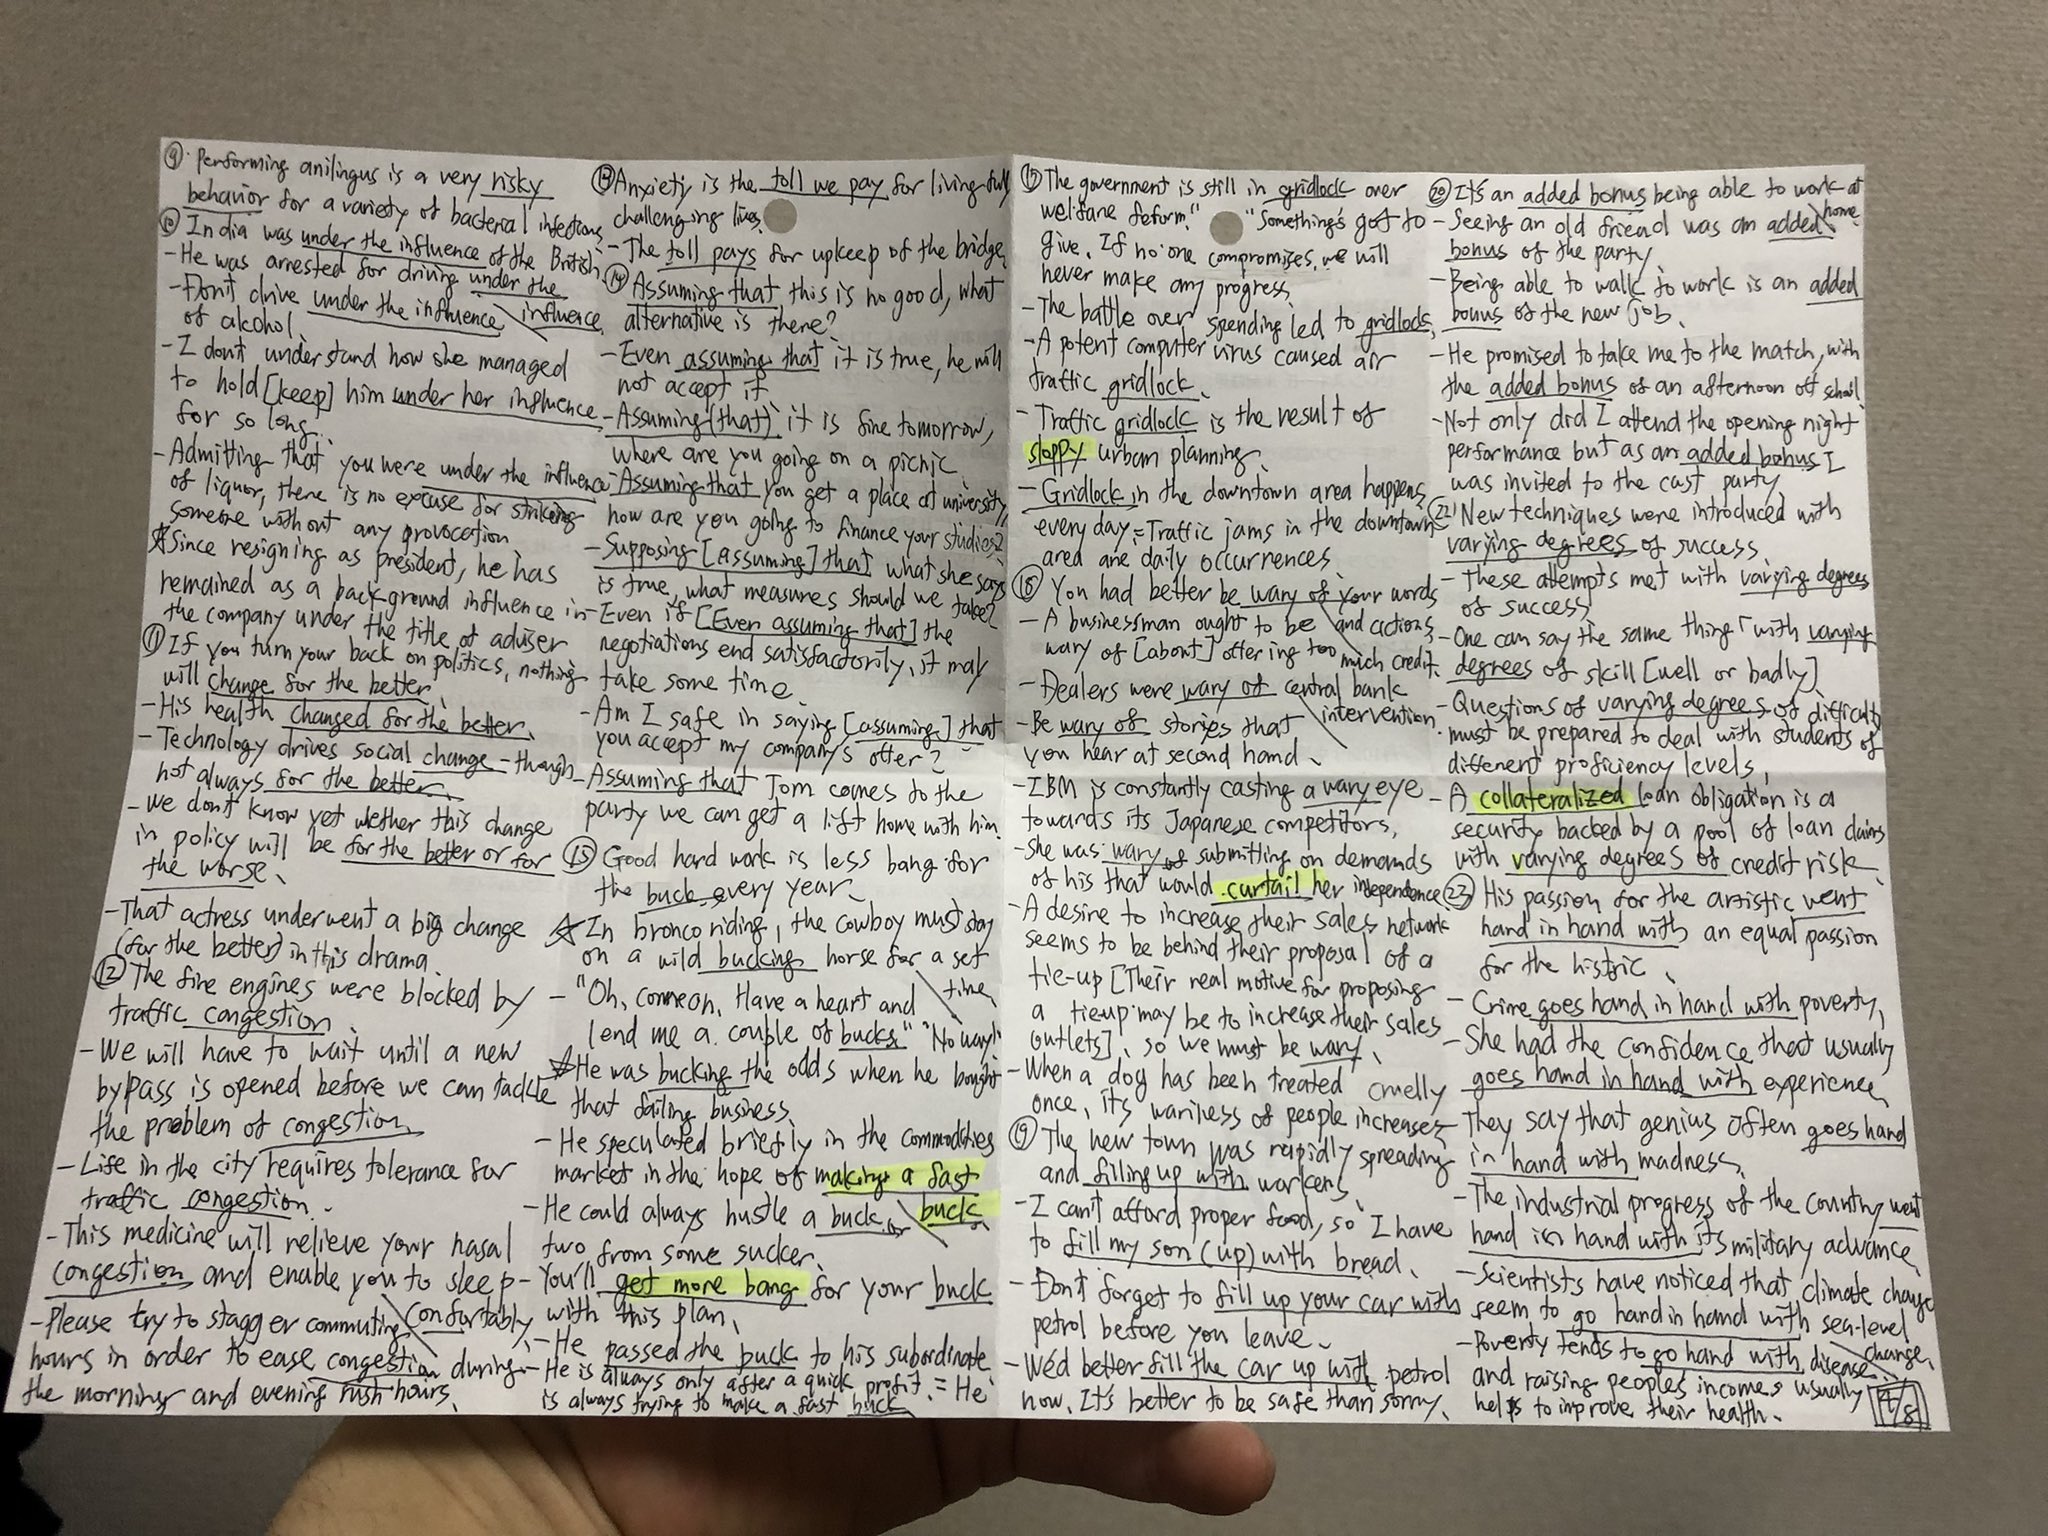 ⑨· Performing anilingus is a very risky
behavior for a variety of bacterial infections
⑩ India was under the influence of the British,
- He was arrested for driving under the
influence,
- Don't drive under the influence
of alcohol
- I don't understand how she managed
to hold [keep] him under her influence
for so long.
- Admitting that you were under the influence
of liquor, there is no excuse for striking
someone without any provocation
☆Since resigning as president, he has
remained as a background influence in
the company under the title of adviser
⑪ If you turn your back on politics, nothing
will change for the better.
- His health changed for the better.
- Technology drives social change - though
not always for the better.
- We don't know yet whether this change
in policy will be for the better or for
the worse.
- That actress underwent a big change
(for the better) in this drama.
⑫ The fire engines were blocked by
traffic congestion.
- We will have to wait until a new
bypass is opened before we can tackle
the problem of congestion.
- Life in the city requires tolerance for
traffic congestion.
- This medicine will relieve your nasal
congestion and enable you to sleep
confortably,
- Please try to stagger commuting
hours in order to ease congestion during
the morning and evening rush hours.
⑬ Anxiety is the toll we pay for living full
challenging lives
- The toll pays for upkeep of the bridge.
⑭ Assuming that this is no good, what
alternative is there?
- Even assuming that it is true, he will
not accept it
- Assuming (that) it is fine tomorrow,
where are you going on a picnic
- Assuming that you get a place at university,
how are you going to finance your studies?
- Supposing [assuming] that what she says
is true, what measures should we take?
- Even if [Even assuming that] the
negotiations end satisfactorily, it may
take some time
- Am I safe in saying [assuming] that
you accept my company's offer?
- Assuming that Tom comes to the
party we can get a lift home with him.
⑮ Good hard work is less bang for
the buck every year.
☆ In bronco riding, the cowboy must stay
on a wild bucking horse for a set
time,
- "Oh, come on. Have a heart and
lend me a couple of bucks." "No way!"
☆He was bucking the odds when he bought
that failing business.
- He speculated briefly in the commodities
market in the hope of making a fast
buck.
- He could always hustle a buck or
two from some sucker.
- You'll get more bang for your buck
with this plan.
- He passed the buck to his subordinate
- He is always only after a quick profit. = He
is always trying to make a fast buck
⑰ The government is still in gridlock over
welfare reform." "Something's got to
give. If no one compromises, we will
never make any progress.
- The battle over spending led to gridlock,
- A potent computer virus caused air
traffic gridlock.
- Traffic gridlock is the result of
sloppy urban planning.
- Gridlock in the downtown area happens
every day = Traffic jams in the downtown
area are daily occurrences
⑱ You had better be wary of your words
and actions,
- A businessman ought to be
wary of [about] offering too much credit.
- Dealers were wary of central bank
intervention.
- Be wary of stories that
you hear at second hand.
- IBM is constantly casting a wary eye
towards its Japanese competitors,
- She was wary of submitting on demands
of his that would curtail her independence
- A desire to increase their sales network
seems to be behind their proposal of a
tie-up [Their real motive for proposing
a tie-up may be to increase their sales
outlets], so we must be wary.
- When a dog has been treated cruelly
once, its wariness of people increases
⑲ The new town was rapidly spreading
and filling up with workers
- I can't afford proper food, so I have
to fill my son (up) with bread.
- Don't forget to fill up your car with
petrol before you leave.
- We'd better fill the car up with petrol
now. It's better to be safe than sorry.
⑳ It's an added bonus being able to work at
home
- Seeing an old friend was an added
bonus of the party
- Being able to walk to work is an added
bonus of the new job.
- He promised to take me to the match, with
the added bonus of an afternoon off school
- Not only did I attend the opening night
performance but as an added bonus I
was invited to the cast party
(22) New techniques were introduced with
varying degrees of success.
- These attempts met with varying degrees
of success
- One can say the same thing with varying
degrees of skill [well or badly]
- Questions of varying degrees of difficulty
must be prepared to deal with students of
different proficiency levels,
- A collateralized loan obligation is a
security backed by a pool of loan claims
with varying degrees of credit risk
(23) His passion for the artistic went
hand in hand with an equal passion
for the histric.
- Crime goes hand in hand with poverty,
- She had the confidence that usually
goes hand in hand with experience
- They say that genius often goes hand
in hand with madness.
- The industrial progress of the country went
hand in hand with its military advance
- Scientists have noticed that climate change
seem to go hand in hand with sea-level
change,
- Poverty tends to go hand with disease
and raising people's incomes usually
helps to improve their health.